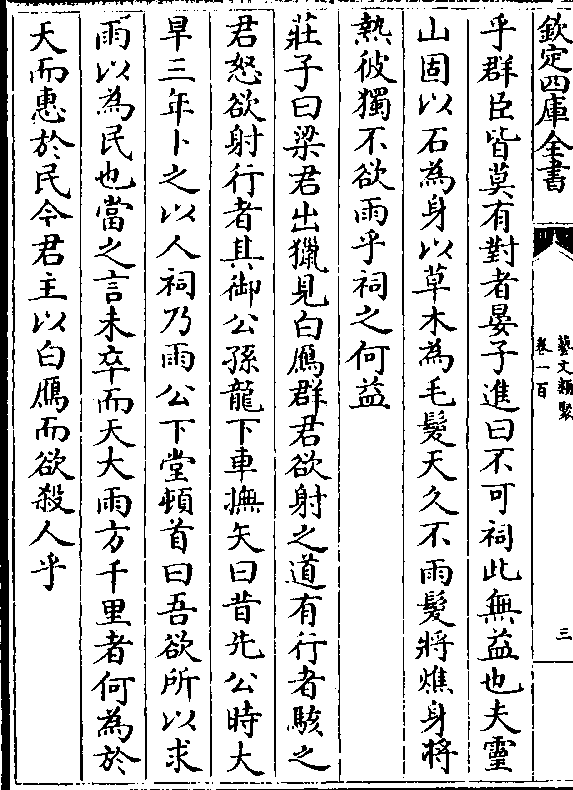 欽定四庫全書
藝文類聚
卷一百
三
乎群臣皆莫有對者晏子進曰不可祠此無益也夫靈
山固以石為身以草木為毛髮天久不雨髮將燋身將
熱彼獨不欲雨乎祠之何益
莊子曰梁君出獵見白鴈群君欲射之道有行者駭之
君怒欲射行者其御公孫龍下車撫矢曰昔先公時大
旱三年卜之以人祠乃雨公下堂頓首曰吾欲所以求
雨以為民也當之言未卒而天大雨方千里者何為於
天而惠於民今君主以白鴈而欲殺人乎